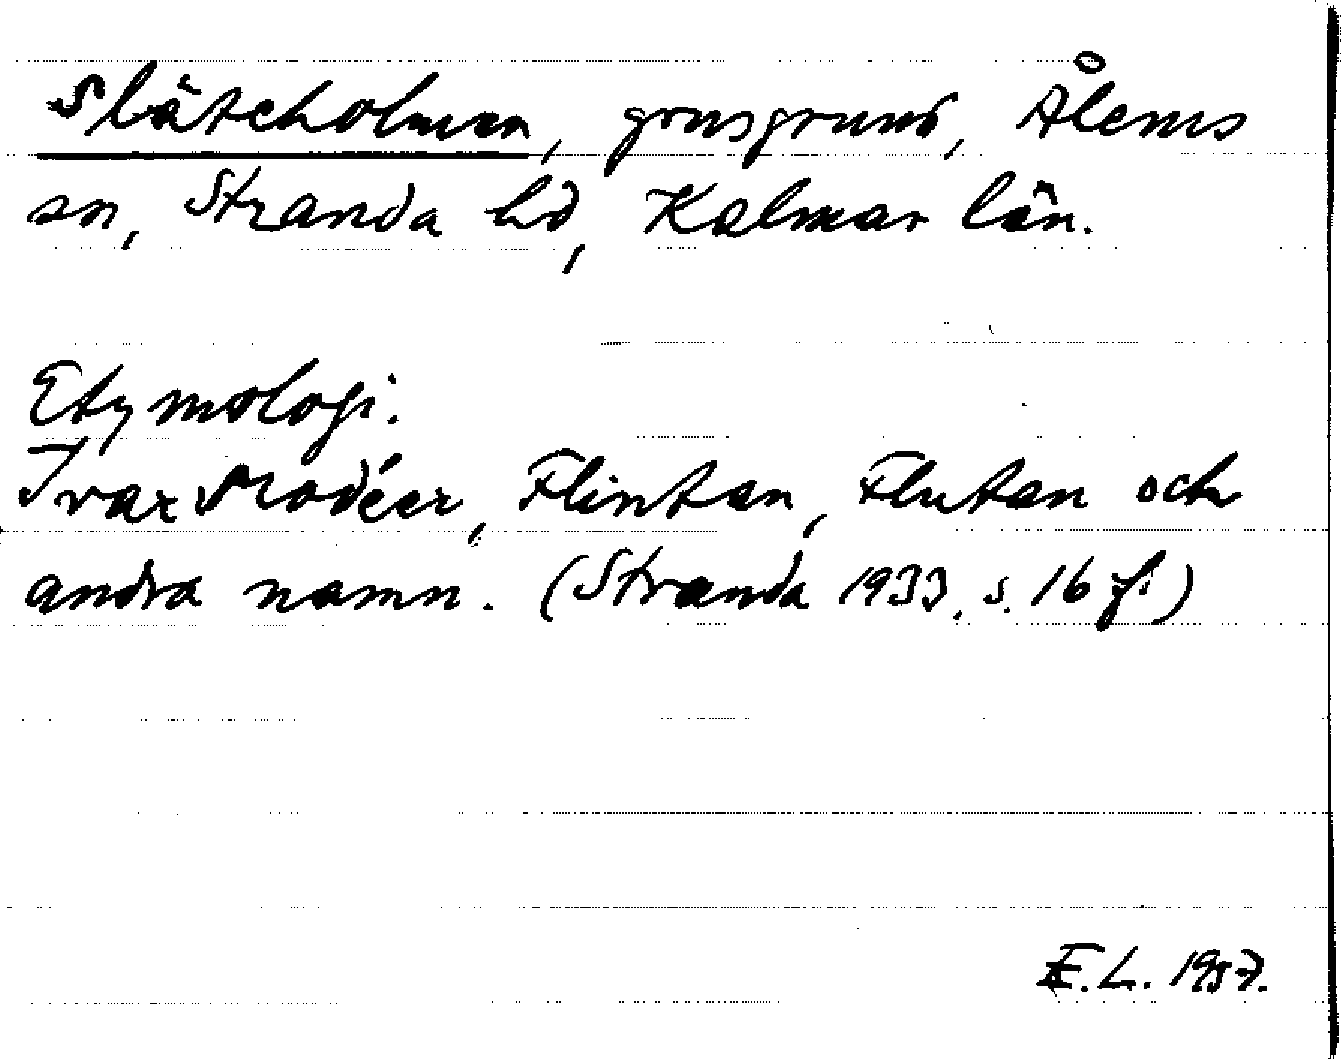 Släteholmen, grusgrund, Ålems
sn, Stranda hd, Kalmar län.
Etymologi.
Ivar Modéer, Flintan, Flutan och
andra namn. (Stranda 1933, s. 16 f.)
E.L. 1957.